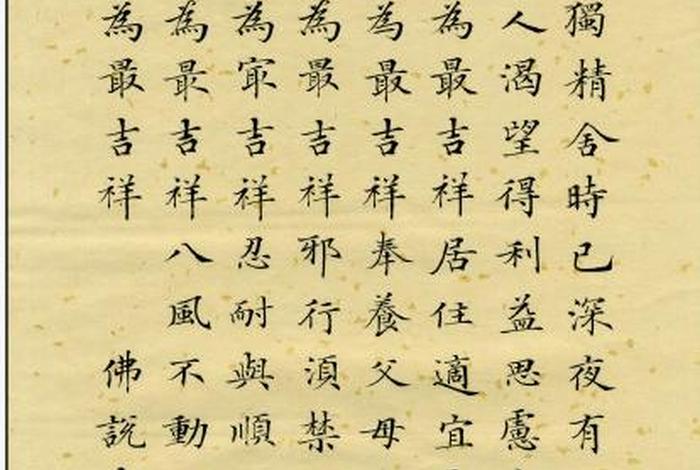 獨精舍時已深夜有
人渴望得利益思慮
為最吉祥居住適宜
為最吉祥奉養父母
為最吉祥邪行須禁
為冣吉祥忍耐與順
為最吉祥八風不動
為最吉祥 佛說